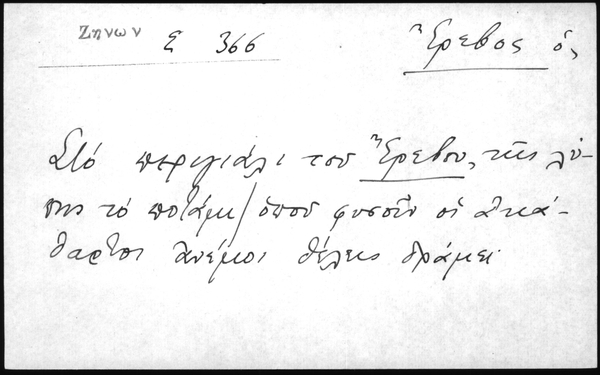 Ζηνων Ε 366 Ἔρεβος ὁ,
Στό περιγιάλι του Ἔρεβου, τῆς λύ-
πης τό ποτάμι / ὁπού φυσοῦν οἱ ἀκά-
θαρτοι ἀνέμοι θέλεις δράμει